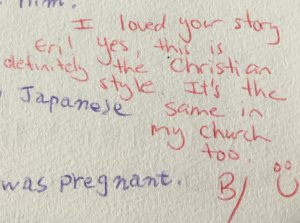 him.
I loved your story
Eri! Yes, this is
definitely the Christian
style. It's the
Japanese same in
my church
too.
was pregnant. B/